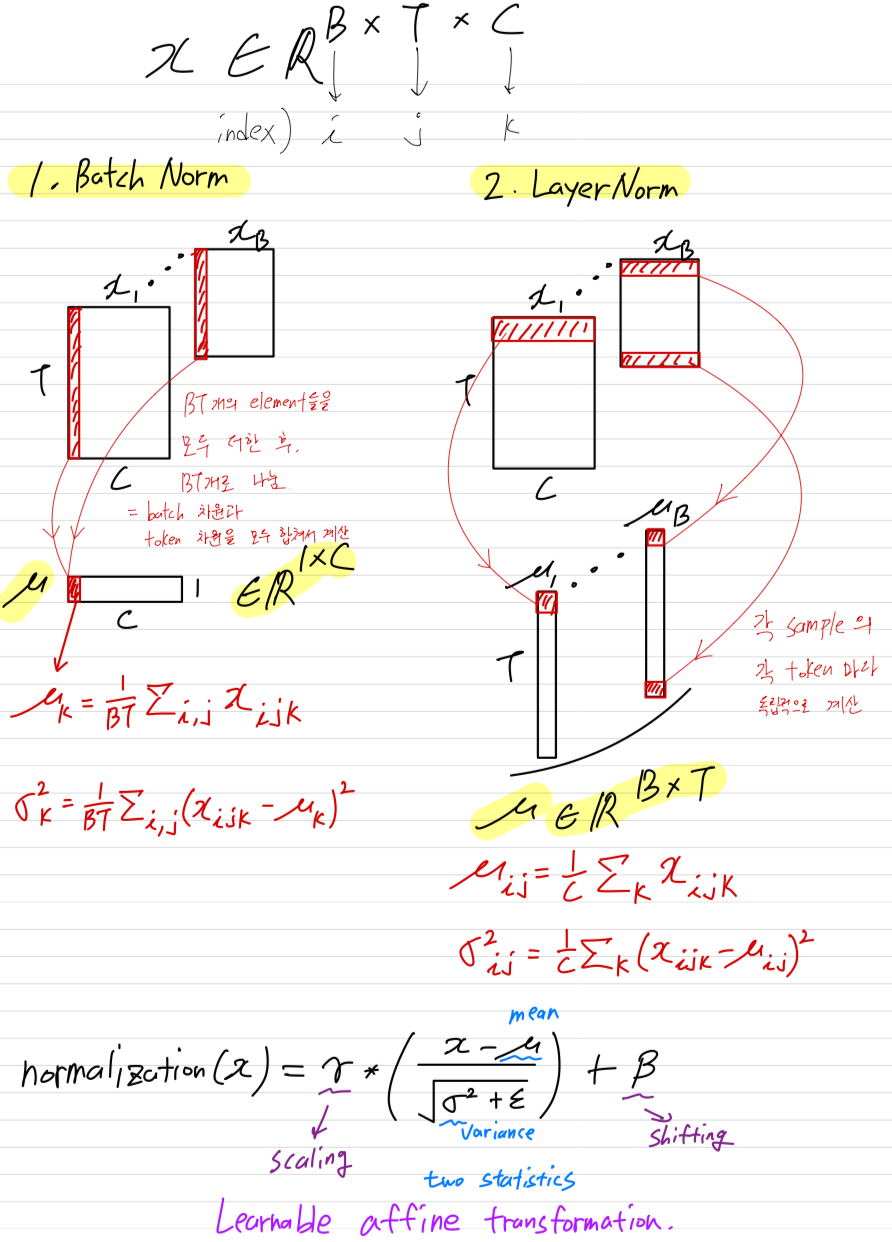 x ∈ ℝ^{B × T × C}
index) i j k
1. Batch Norm
x_1 ... x_B
T
C
BT개의 element들을
모두 더한 후,
BT개로 나눔
= batch 차원과
token 차원을 모두 합쳐서 계산
μ
C
1
∈ ℝ^{1×C}
μ_k = 1/BT Σ_{i,j} x_{ijk}
σ²_k = 1/BT Σ_{i,j} (x_{ijk} - μ_k)²
2. LayerNorm
x_1 ... x_B
T
C
μ_1 ... μ_B
T
각 sample의
각 token마다
독립적으로 계산
μ ∈ ℝ^{B×T}
μ_{ij} = 1/C Σ_k x_{ijk}
σ²_{ij} = 1/C Σ_k (x_{ijk} - μ_{ij})²
mean
normalization(x) = γ * ( (x - μ) / √(σ² + ε) ) + β
variance
scaling
shifting
two statistics
Learnable affine transformation.